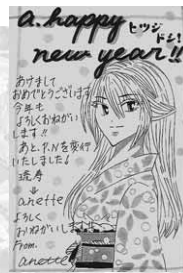 a. happy
new year!!
ヒツジ
ドシ!
あけまして
おめでとうございます
今年も
よろしくおねがい
します!!
あと、P.Nを変行
いたしました!
↓
anette
よろしく
おねがいします
From.
anette